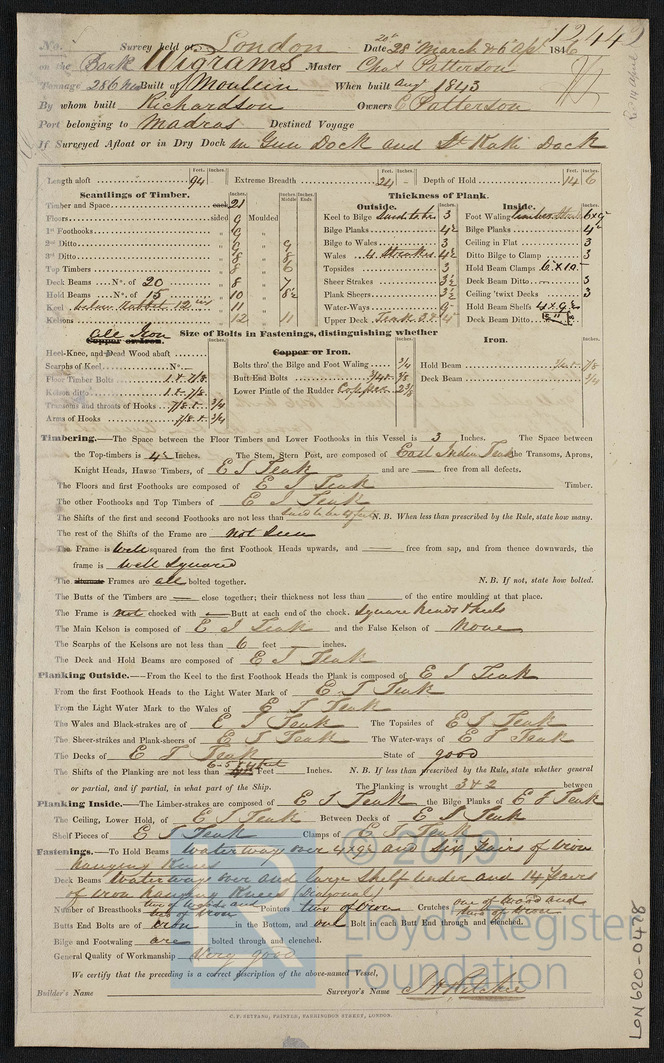 No. Survey held at London Date 20th 28 March & 6 Apl 1846 12442
on the Bark Wigrams Master Chas Patterson
Tonnage 286 Built of Moulein When built Augt 1843
By whom built Richardson Owners C Patterson
Port belonging to Madras Destined Voyage
If Surveyed Afloat or in Dry Dock in Gun Dock and St Kath Dock
Length aloft 94 Extreme Breadth 24 Depth of Hold 14 6
Scantlings of Timber.
Timber and Space each 21
Floors sided 9 Moulded
1st Foothooks
2nd Ditto 9
3rd Ditto 8 8
Top Timbers 8 6
Deck Beams No. of 20 8 7
Hold Beams No. of 15 10 8½
Keel below Rabbet 12 in 11
Kelsons 12 11
Thickness of Plank.
Outside.
Keel to Bilge 3
Bilge Planks 4½
Bilge to Wales 3
Wales 4 Strakes 4½
Topsides 3
Sheer Strakes 3½
Plank Sheers 3½
Water-Ways
Upper Deck Teak
Inside.
Foot Waling limber Strake
Bilge Planks
Ceiling in Flat 3
Ditto Bilge to Clamp 3
Hold Beam Clamps 6 x 10
Deck Beam Ditto 3
Ceiling 'twixt Decks 3
Hold Beam Shelfs
Deck Beam Ditto
All Iron
Size of Bolts in Fastenings, distinguishing whether
Copper or Iron.
Heel-Knee, and Dead Wood abaft
Scarphs of Keel No.
Floor Timber Bolts 1 & 7/8
Kelson ditto 1 & 7/8
Transoms and throats of Hooks 7/8 & 3/4
Arms of Hooks 7/8 & 3/4
Copper or Iron.
Bolts thro' the Bilge and Foot Waling 3/4
Butt End Bolts 3/4 &
Lower Pintle of the Rudder Copper
Iron.
Hold Beam 7/8
Deck Beam 3/4
Timbering.—The Space between the Floor Timbers and Lower Foothooks in this Vessel is 3 Inches. The Space between
the Top-timbers is 4½ Inches. The Stem, Stern Post, are composed of East India Teak the Transoms, Aprons,
Knight Heads, Hawse Timbers, of E I Teak and are free from all defects.
The Floors and first Foothooks are composed of E I Teak Timber.
The other Foothooks and Top Timbers of E I Teak
The Shifts of the first and second Foothooks are not less than Said to be 4 feet N. B. When less than prescribed by the Rule, state how many.
The rest of the Shifts of the Frame are not Seen
The Frame is Well squared from the first Foothook Heads upwards, and free from sap, and from thence downwards, the
frame is Well Squared
The alternate Frames are all bolted together. N. B. If not, state how bolted.
The Butts of the Timbers are close together; their thickness not less than of the entire moulding at that place.
The Frame is not chocked with Butt at each end of the chock. Square heads & heels
The Main Kelson is composed of E I Teak and the False Kelson of None
The Scarphs of the Kelsons are not less than 6 feet inches.
The Deck and Hold Beams are composed of E I Teak
Planking Outside.—From the Keel to the first Foothook Heads the Plank is composed of E I Teak
From the first Foothook Heads to the Light Water Mark of E I Teak
From the Light Water Mark to the Wales of E I Teak
The Wales and Black-strakes are of E I Teak The Topsides of E I Teak
The Sheer-strakes and Plank-sheers of E I Teak The Water-ways of E I Teak
The Decks of E I Teak State of good
The Shifts of the Planking are not less than 6-5 & 4 feet Feet Inches. N. B. If less than prescribed by the Rule, state whether general
or partial, and if partial, in what part of the Ship. The Planking is wrought 3 & 2 between
Planking Inside.—The Limber-strakes are composed of E I Teak the Bilge Planks of E I Teak
The Ceiling, Lower Hold, of E I Teak Between Decks of E I Teak
Shelf Pieces of E I Teak Clamps of E I Teak
Fastenings.—To Hold Beams Waterways over 4 x 9½ and six pairs of iron
hanging Knees
Deck Beams Waterways over and large shelf under and 14 pairs
of iron hanging Knees (Diagonals)
Number of Breasthooks two of wood and two of iron Pointers two of iron Crutches one of wood and two of iron
Butts End Bolts are of iron in the Bottom, and one Bolt in each Butt End through and clenched.
Bilge and Footwaling are bolted through and clenched.
General Quality of Workmanship Very good
We certify that the preceding is a correct description of the above-named Vessel,
Builder's Name Surveyor's Name J H Ritchie
C. F. SEYFANG, PRINTER, FARRINGDON STREET, LONDON.
LON 620-0478
© 2019
Lloyd's Register
Foundation